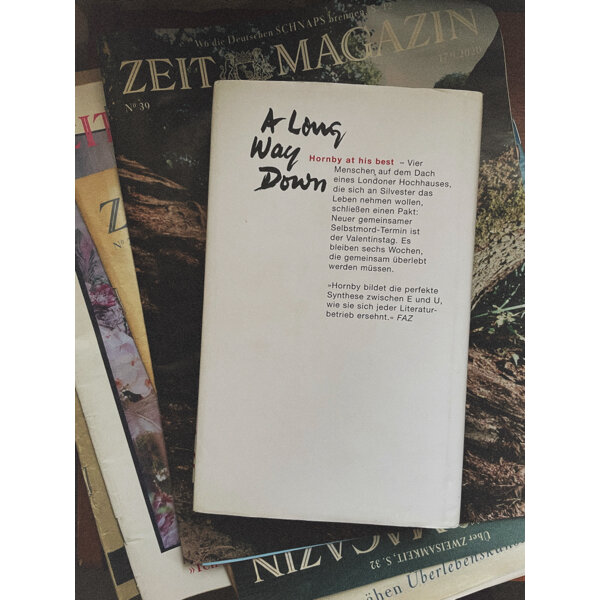 Wo die Deutschen SCHNAPS brennen
ZEIT MAGAZIN
17.9.2020
Nº 39
A Long
Way
Down
Hornby at his best – Vier
Menschen auf dem Dach
eines Londoner Hochhauses,
die sich an Silvester das
Leben nehmen wollen,
schließen einen Pakt:
Neuer gemeinsamer
Selbstmord-Termin ist
der Valentinstag. Es
bleiben sechs Wochen,
die gemeinsam überlebt
werden müssen.
»Hornby bildet die perfekte
Synthese zwischen E und U,
wie sie sich jeder Literatur-
betrieb ersehnt.« FAZ
Über ZWEISAMKEIT, S. 32
MAGAZIN